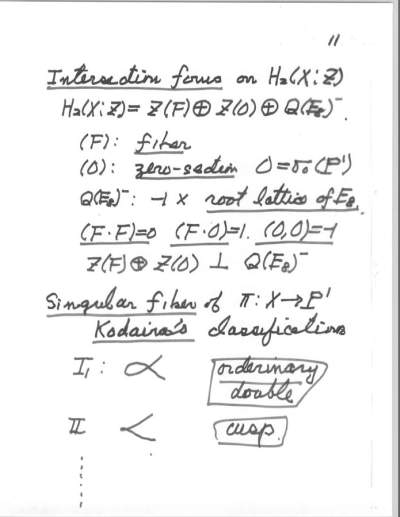 11
Intersection forms on H₂(X:Z)
H₂(X:Z)= Z(F)⊕Z(O)⊕Q(E₈)⁻.
(F): fiber
(O): zero-section O=σ₀(P¹)
Q(E₈)⁻: -1 × root lattice of E₈.
(F·F)=0 (F·O)=1. (O,O)=-1
Z(F)⊕Z(O) ⊥ Q(E₈)⁻
Singular fiber of π: X→P¹
Kodaira's classification
I₁: orderinary
double
II cusp.